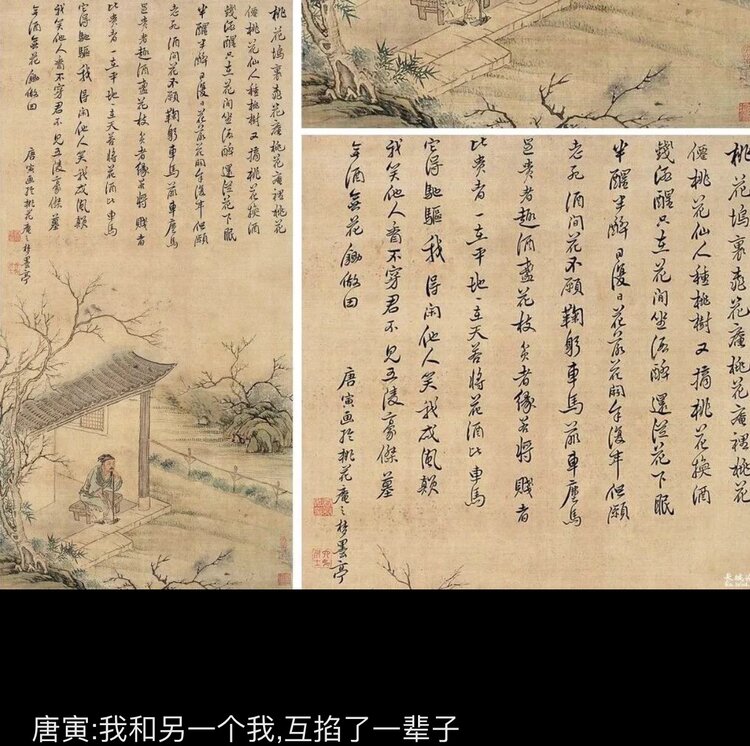 桃花塢裏桃花庵桃花庵裡桃花
僊桃花仙人種桃樹又摘桃花換酒
錢酒醒只在花間坐酒醉還從花下眠
半醒半醉日復日花落花開年復年但願
老死酒間花不願鞠躬車馬前車塵馬
足貴者趣酒盞花枝貧者緣若將賤者
比貴者一在平地一在天若將花酒比車馬
它得馳驅我得閑他人笑我忒風顛
我笑他人看不穿君不見五陵豪傑墓
無酒無花鋤做田
唐寅画於桃花庵之夢墨亭
桃花塢裏桃花庵桃花庵裡桃花
僊桃花仙人種桃樹又摘桃花換酒
錢酒醒只在花間坐酒醉還從花下眠
半醒半醉日復日花落花開年復年但願
老死酒間花不願鞠躬車馬前車塵馬
足貴者趣酒盞花枝貧者緣若將賤者
比貴者一在平地一在天若將花酒比車馬
它得馳驅我得閑他人笑我忒風顛
我笑他人看不穿君不見五陵豪傑墓
無酒無花鋤做田
唐寅画於桃花庵之夢墨亭
唐寅:我和另一个我,互掐了一辈子